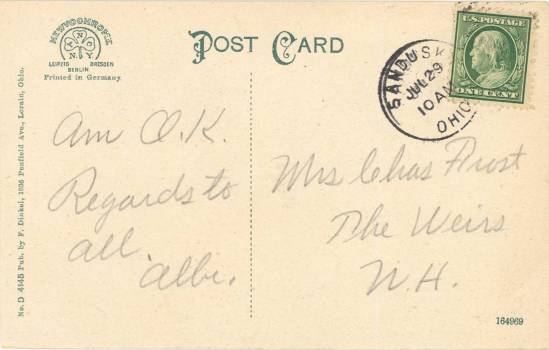 NEWVOCHROME
N
N O
Y
LEIPZIG DRESDEN
BERLIN
Printed in Germany.
POST CARD
SANDUSK
JUL 29
10 AM
OHIO
U.S. POSTAGE
ONE CENT
Am O.K.
Regards to
all.
Albe.
Mrs Chas Frost
The Weirs
N.H.
No. D 4145 Pub. by F. Dinkel, 1636 Penfield Ave., Lorain, Ohio.
164969